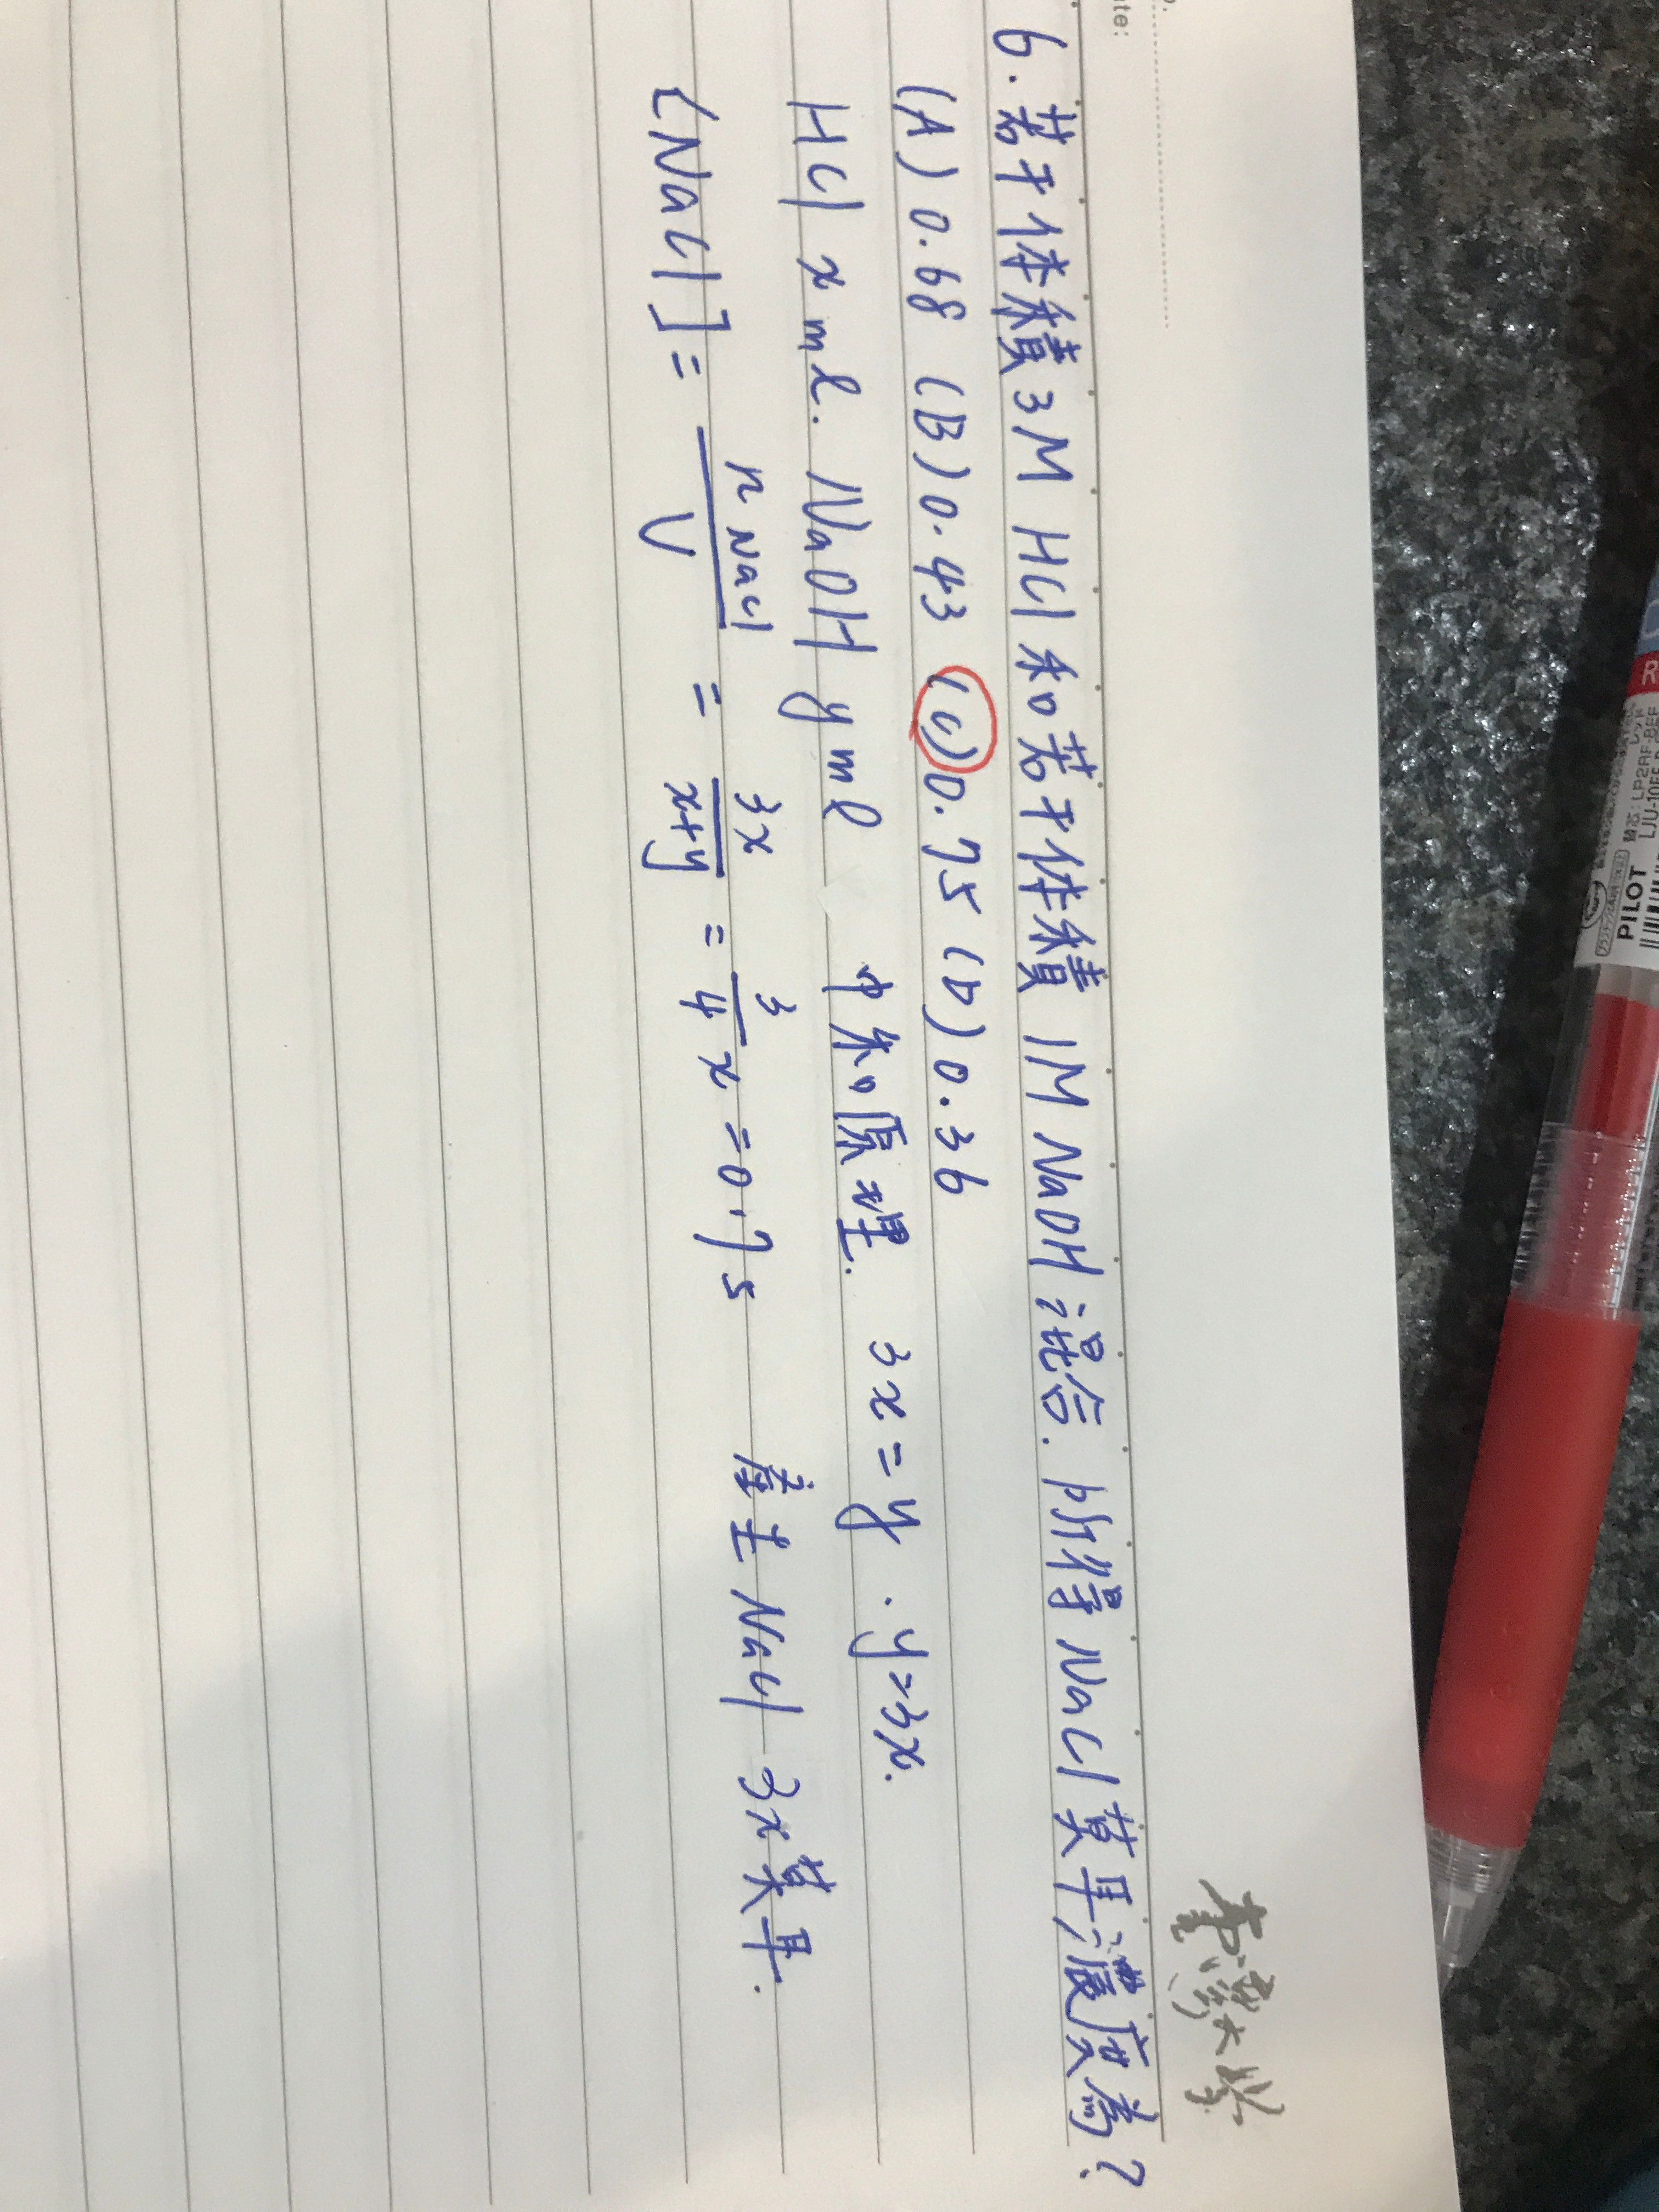 ate:
6. 若干体積3M HCl 和若干体積 1M NaOH混合. 所得NaCl莫耳濃度為?
(A) 0.68 (B) 0.43 (C) 0.75 (D) 0.36
HCl x ml. NaOH y ml 中和原理. 3x = y . y=3x.
[NaCl] = n NaCl / V = 3x / x+y = 3/4 x = 0.75 產生 NaCl 3x莫耳.
PILOT